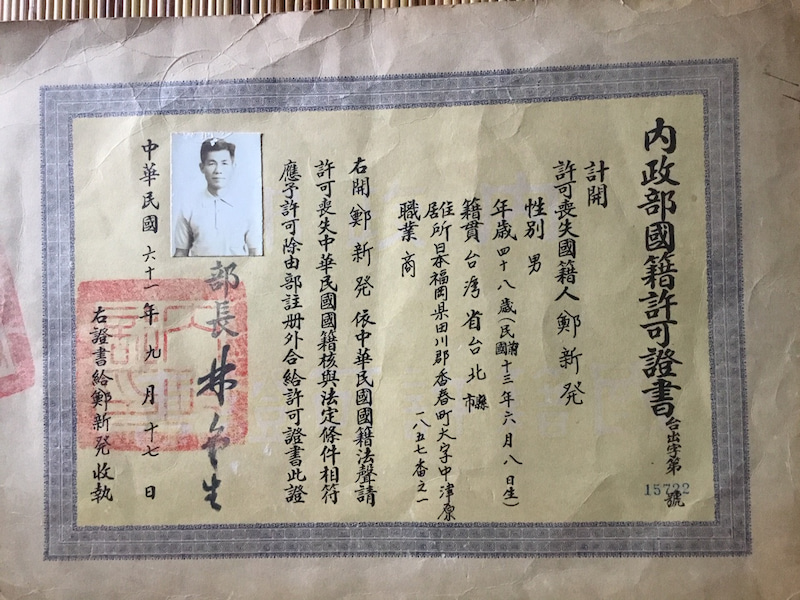 內政部國籍許可證書
台出字第15722號
計開
許可喪失國籍人鄭新発
性別男
年歲四十八歲(民國前十三年六月八日生)
籍貫台灣省台北縣市
住居所日本福岡県田川郡香春町大字中津原
一八五七番之一
職業商
右開鄭新発依中華民國國籍法聲請
許可喪失中華民國國籍核與法定條件相符
應予許可除由部註册外合給許可證書此證
部長林金生
中華民國六十一年九月十七日
右證書給鄭新発收執